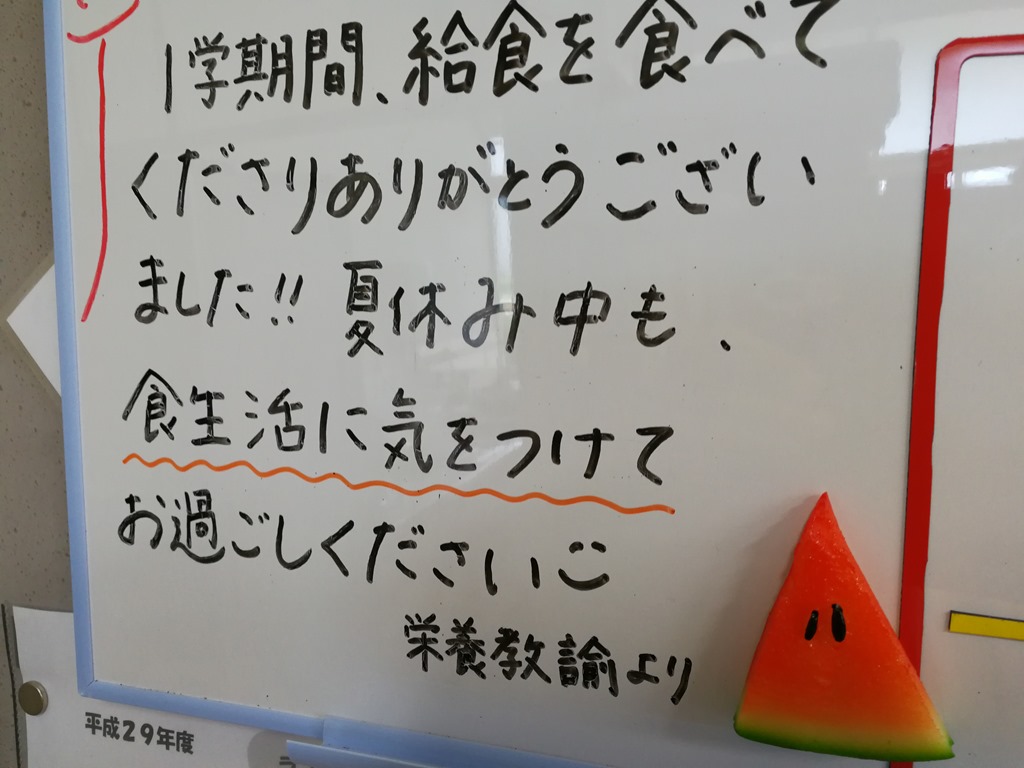 1学期間、給食を食べて
くださりありがとうござい
ました!! 夏休み中も、
食生活に気をつけて
お過ごしください
栄養教諭より
平成29年度